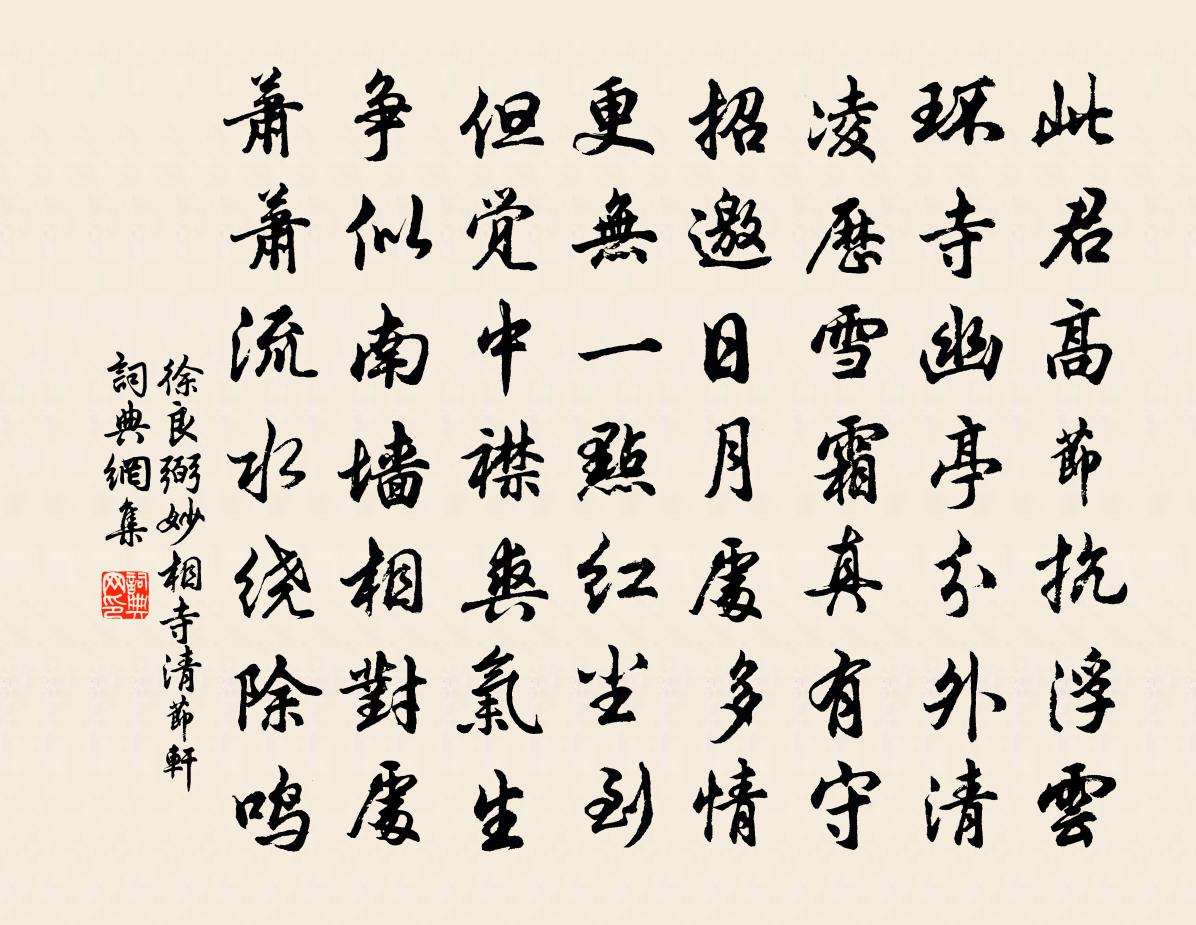 此君高節抗浮雲
环寺幽亭分外清
凌歷雪霜真有守
招邀日月處多情
更無一點紅尘到
但觉中襟爽氣生
争似南墙相對處
蕭蕭流水绕除鸣
徐良弼妙相寺清節軒
詞典網集
詞典网印